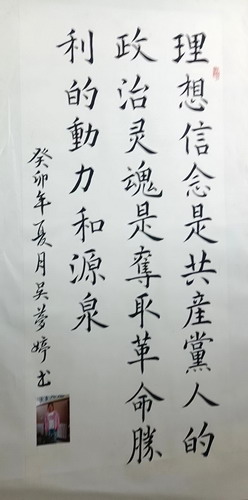 理想信念是共產黨人的
政治灵魂是奪取革命勝
利的動力和源泉
癸卯年夏月吴夢婷书